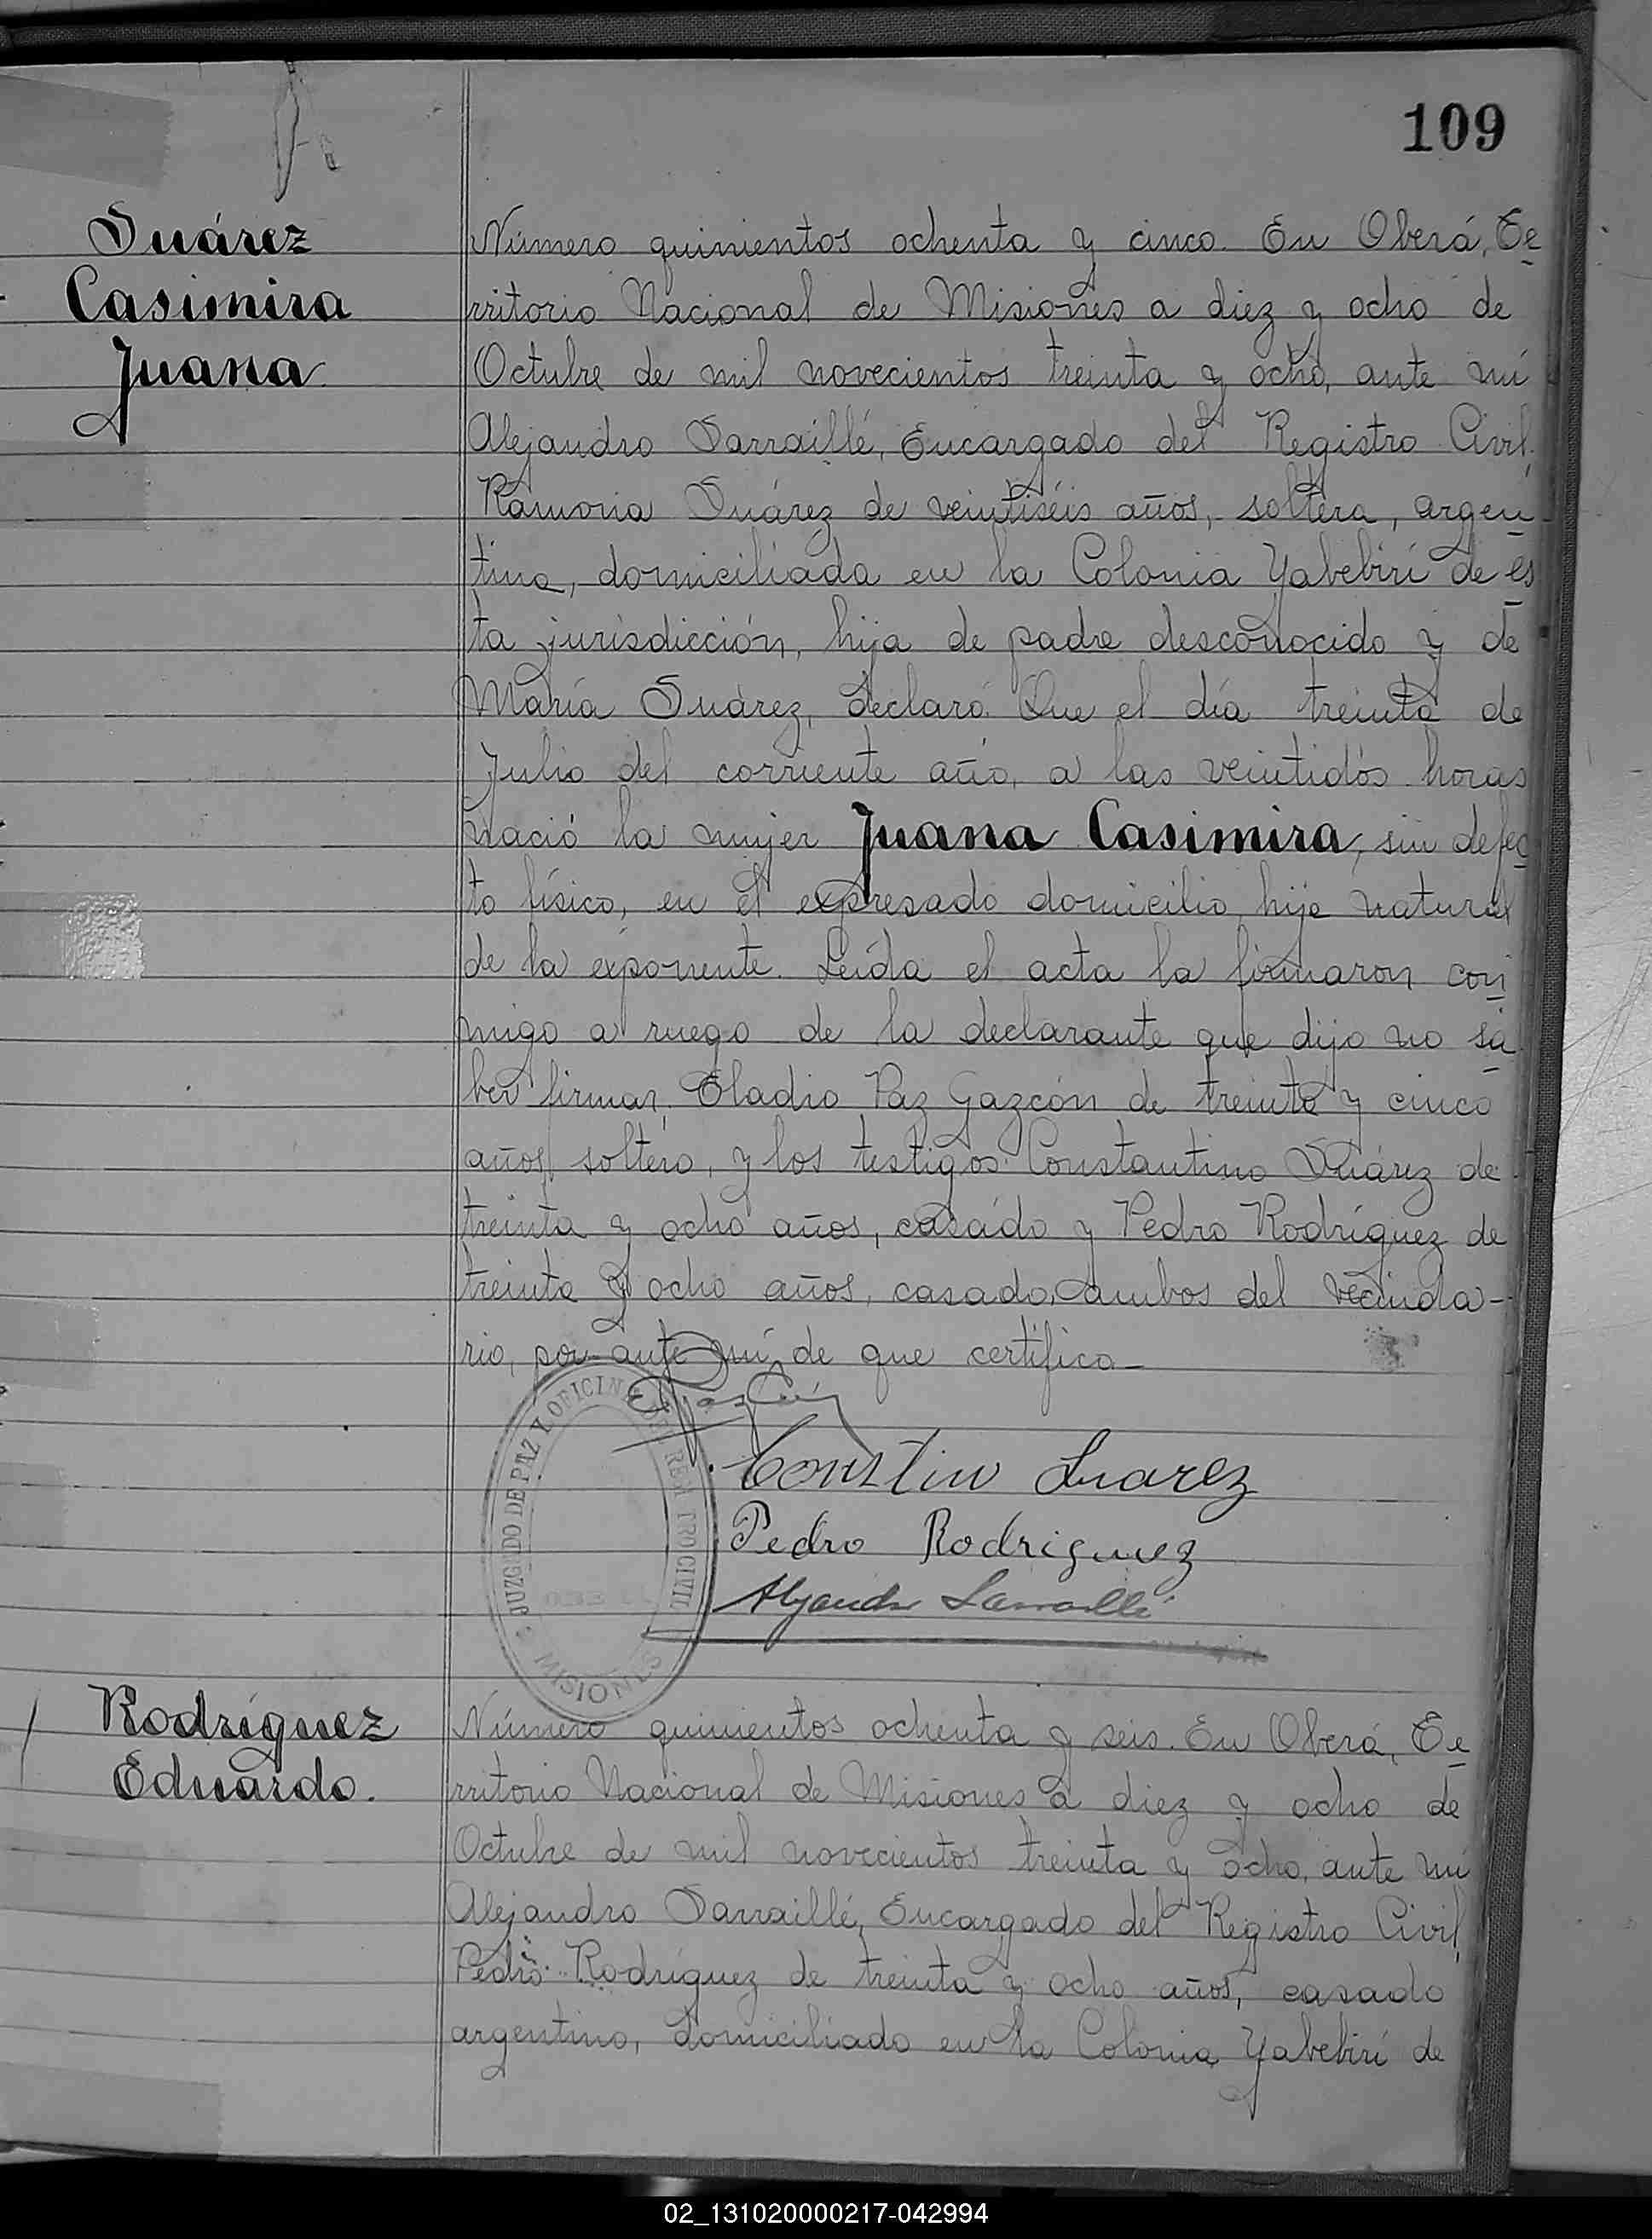 109
Suárez
Casimira
Juana
Número quinientos ochenta y cinco. En Oberá, Te
rritorio Nacional de Misiones a diez y ocho de
Octubre de mil novecientos treinta y ocho, ante mí
Alejandro Sarraillé, Encargado del Registro Civil,
Ramona Suárez de veintiséis años, soltera, argen
tina, domiciliada en la Colonia Yabebirí de és
ta jurisdicción, hija de padre desconocido y de
María Suárez, declaró: Que el día treinta de
Julio del corriente año, a las veintidós horas
nació la mujer Juana Casimira, sin defec
to físico, en el expresado domicilio, hija natural
de la exponente. Leída el acta la firmaron con
migo a ruego de la declarante que dijo no sa
ber firmar, Eladio Paz Gazcón de treinta y cinco
años, soltero, y los testigos: Constantino Suárez de
treinta y ocho años, casado y Pedro Rodríguez de
treinta y ocho años, casado, ambos del vecinda-
rio, por ante mí, de que certifico—
JUZGADO DE PAZ Y OFICINA DEL REGISTRO CIVIL
MISIONES
Consttin Suarez
Pedro Rodriguez
Alejandro Sarraillé
Rodríguez
Eduardo.
Número quinientos ochenta y seis. En Oberá, Te
rritorio Nacional de Misiones a diez y ocho de
Octubre de mil novecientos treinta y ocho, ante mí
Alejandro Sarraillé, Encargado del Registro Civil,
Pedro Rodríguez de treinta y ocho años, casado
argentino, domiciliado en la Colonia Yabebirí de
02_131020000217-042994